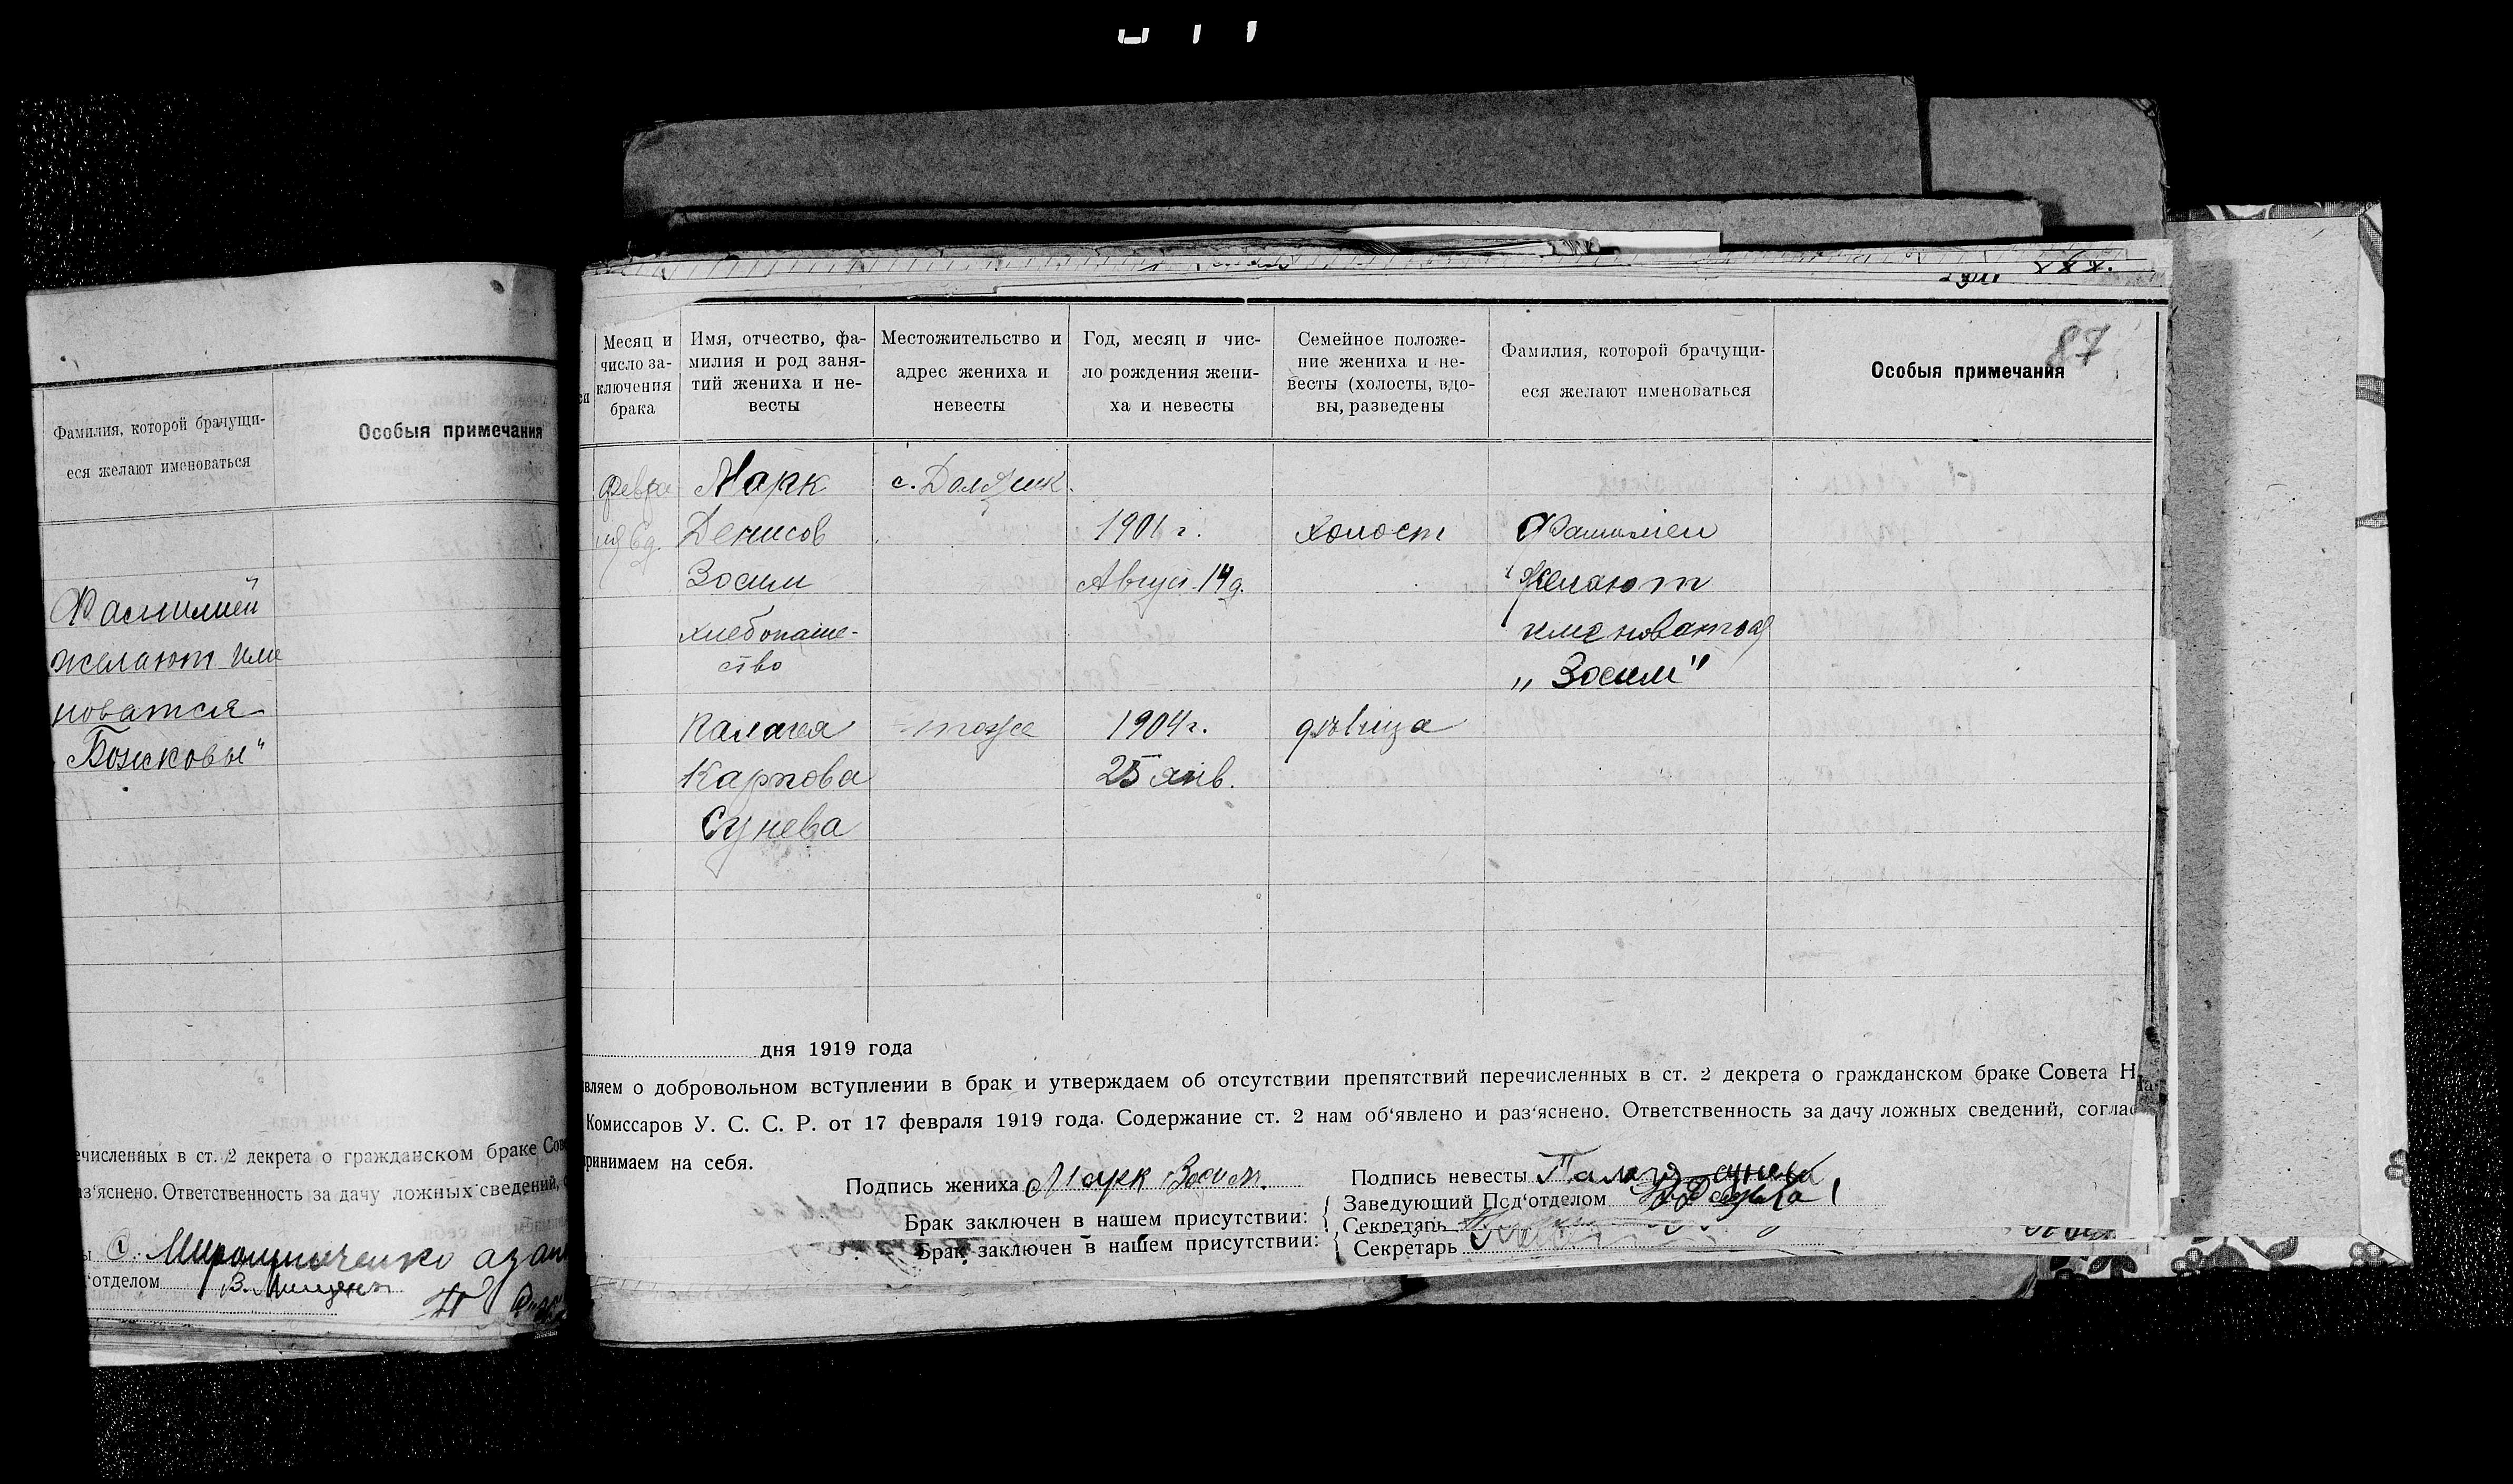 Фамилия, которой брачущи-
еся желают именоваться
Особыя примечания
Фамилией
желают име
новатся
„Божковы"
ечисленных в ст. 2 декрета о гражданском браке Сов
аз'яснено. Ответственность за дачу ложных сведений, с
Мирошниченко
'отделом
87
Месяц и
число за-
ключения
брака
Имя, отчество, фа-
милия и род заня-
тий жениха и не-
весты
Местожительство и
адрес жениха и
невесты
Год, месяц и чис-
ло рождения жени-
ха и невесты
Семейное положе-
ние жениха и не-
весты (холосты, вдо-
вы, разведены
Фамилия, которой брачущи-
еся желают именоваться
Особыя примечания
Февра
ля 6 д.
Марк
Денисов
Зосим
хлебопаше-
ство
1901 г.
Август. 14 д.
холост
Фамилиеи
желают
именоваться
„Зосим"
Палагея
Карпова
Сунева
тоже
1904 г.
25 янв.
дѣвица
дня 1919 года
вляем о добровольном вступлении в брак и утверждаем об отсутствии препятствий перечисленных в ст. 2 декрета о гражданском браке Совета На-
Комиссаров У. С. С. Р. от 17 февраля 1919 года. Содержание ст. 2 нам об'явлено и раз'яснено. Ответственность за дачу ложных сведений, соглас
ринимаем на себя.
Подпись жениха Марк Зосим.
Подпись невесты
Брак заключен в нашем присутствии:
Заведующий Под'отделом
Секретарь
Брак заключен в нашем присутствии:
Секретарь